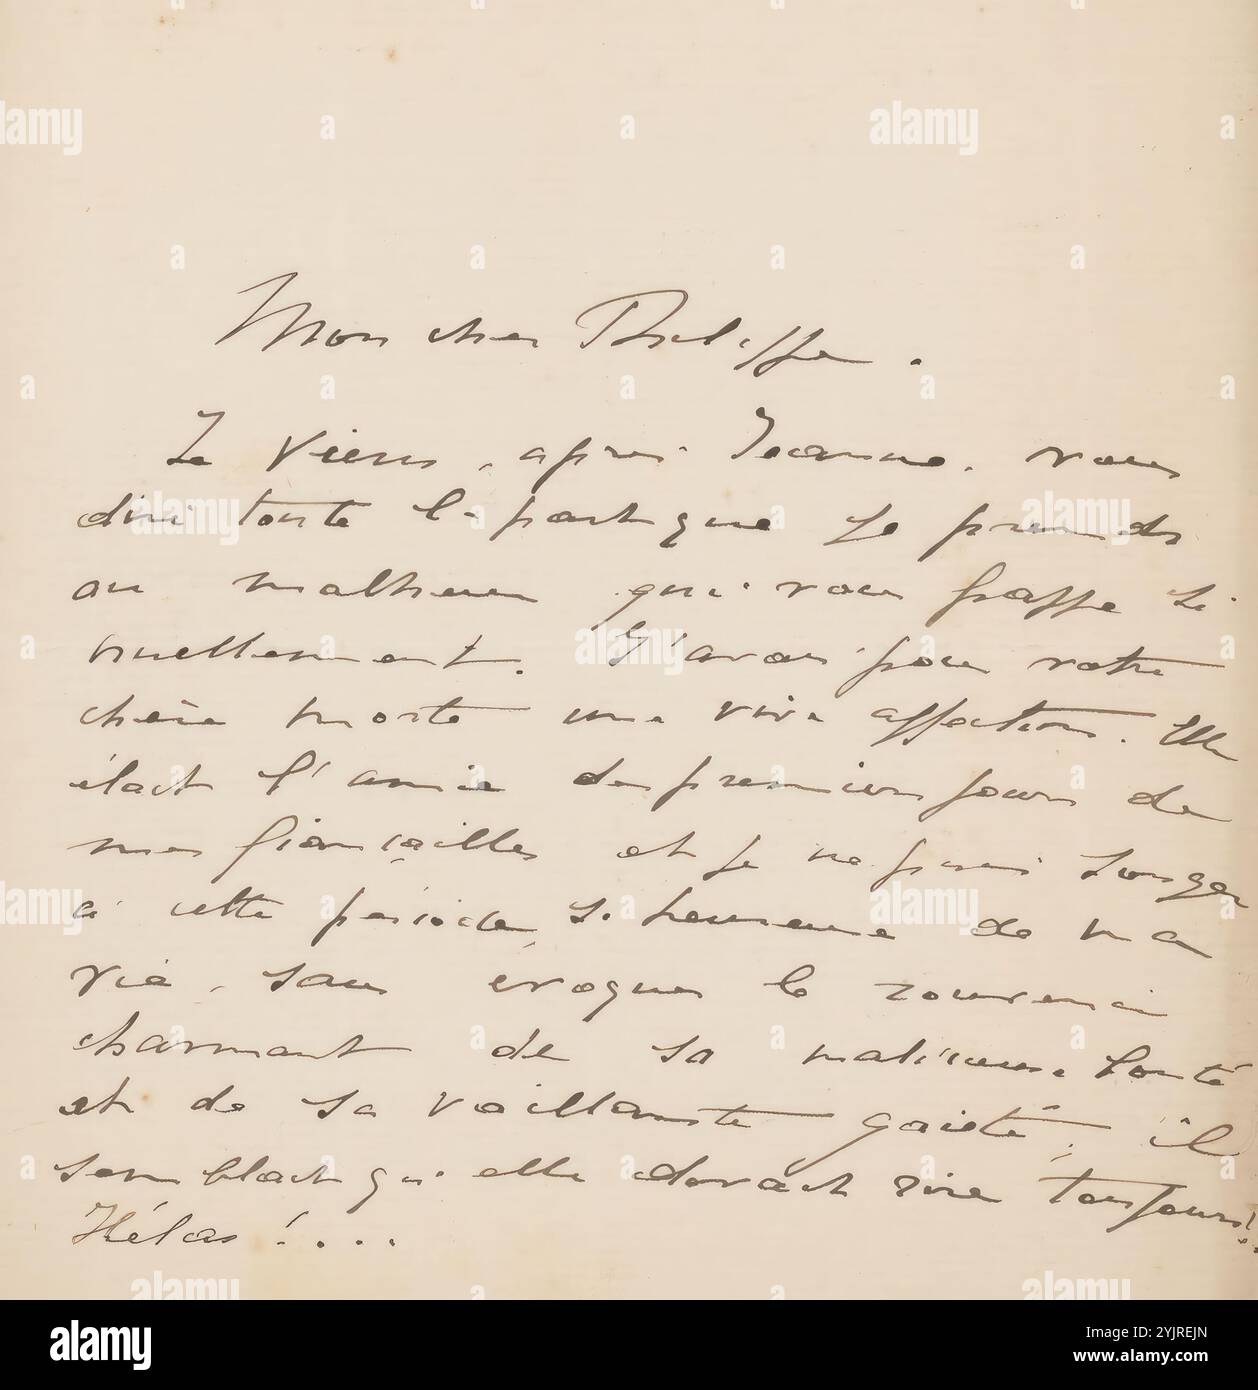 Mon cher Philippe.
Je viens, après Jeanne, vous
dire toute la part que je prends
au malheur qui vous frappe si
cruellement. J'avais pour votre
chère morte une vive affection. Elle
était l'amie des premiers jours de
mes fiançailles et je ne puis songer
à cette période, si heureuse de ma
vie, sans évoquer le souvenir
charmant de sa malicieuse bonté
et de sa vaillante gaieté, il
semblait qu'elle devait rire toujours!..
Hélas!....
alamy
Image ID: 2YJREJN
www.alamy.com